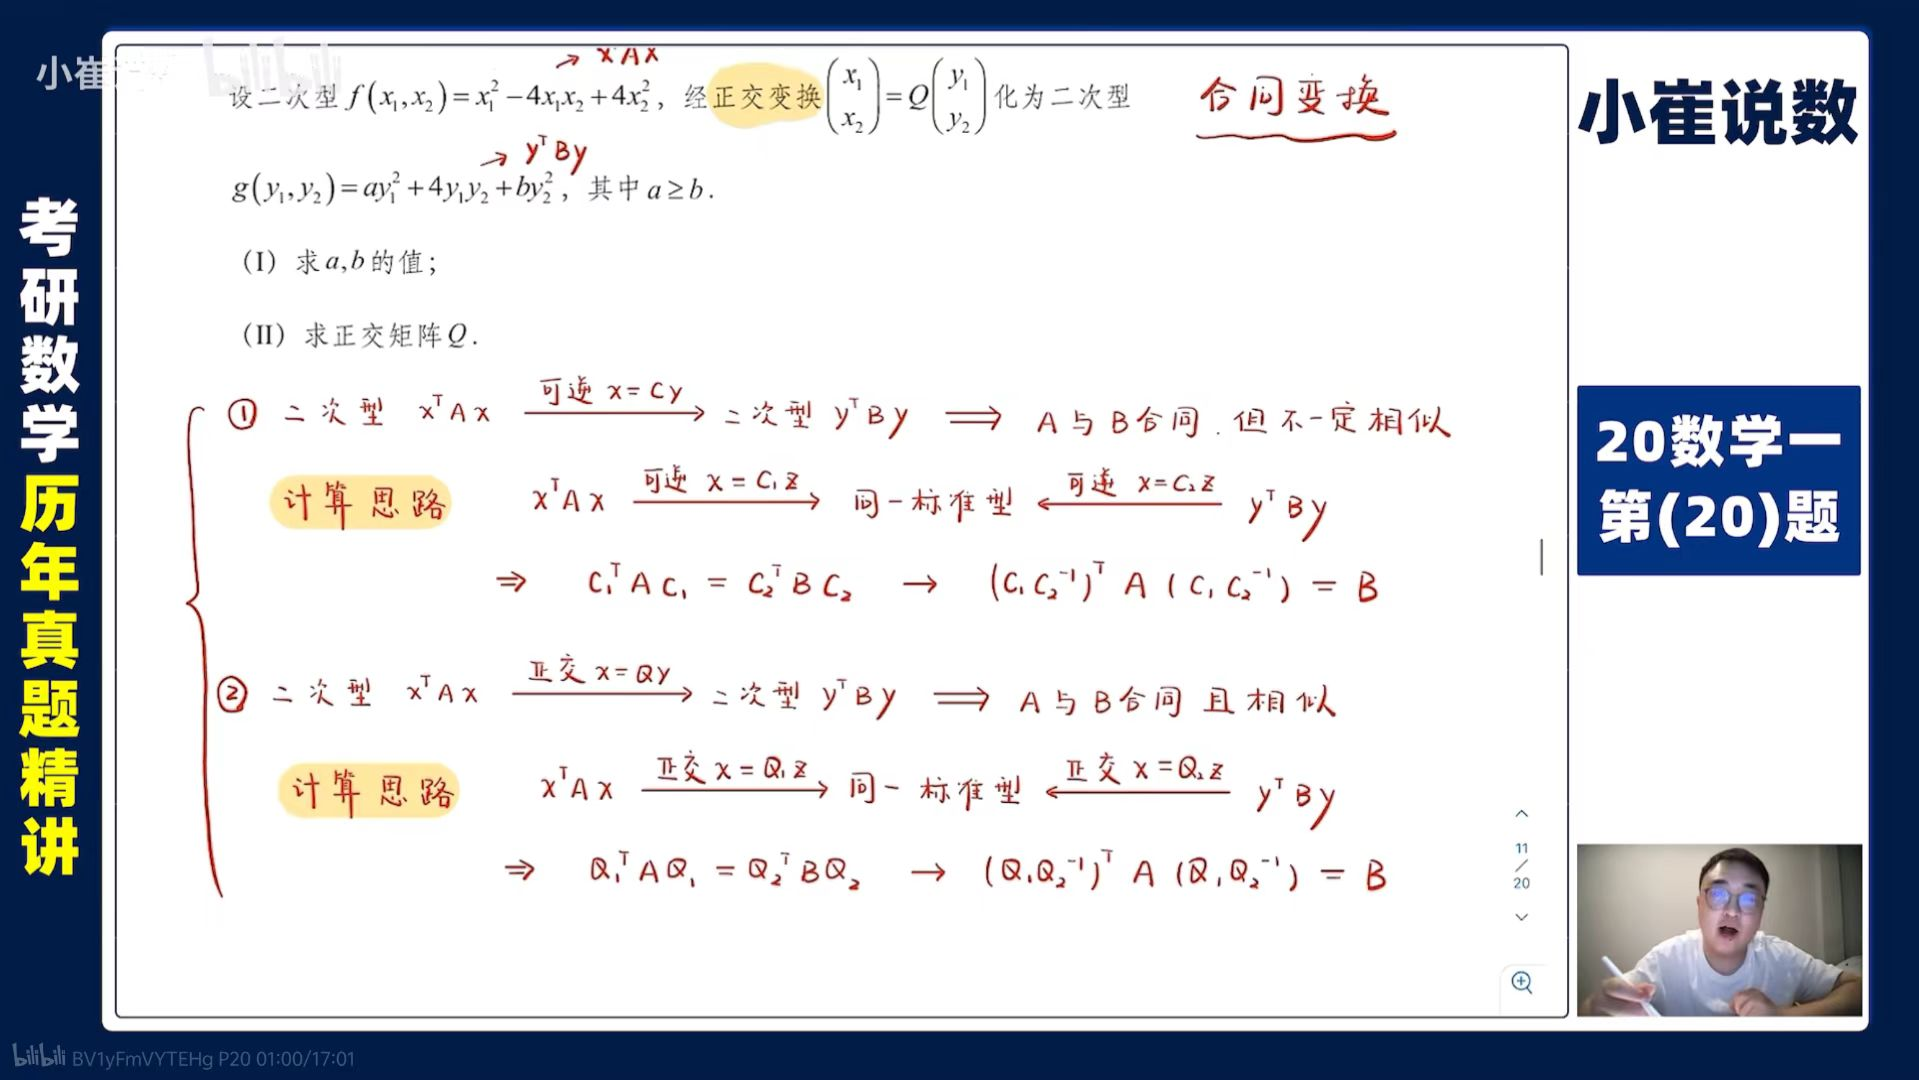 小崔说数 bilibili
设二次型 f(x₁,x₂)=x₁²−4x₁x₂+4x₂², 经正交变换(x₁ x₂)=Q(y₁ y₂)化为二次型
→ xᵀAx
合同变换
→ yᵀBy
g(y₁,y₂)=ay₁²+4y₁y₂+by₂², 其中a≥b.
(I) 求a,b的值;
(II) 求正交矩阵Q.
① 二次型 xᵀAx 可逆 x=Cy → 二次型 yᵀBy ⟹ A与B合同. 但不一定相似
计算思路 xᵀAx 可逆 x=C₁z → 同一标准型 ← 可逆 x=C₂z yᵀBy
⇒ C₁ᵀAC₁ = C₂ᵀBC₂ → (C₁C₂⁻¹)ᵀ A (C₁C₂⁻¹) = B
② 二次型 xᵀAx 正交 x=Qy → 二次型 yᵀBy ⟹ A与B合同且相似
计算思路 xᵀAx 正交 x=Q₁z → 同一标准型 ← 正交 x=Q₂z yᵀBy
⇒ Q₁ᵀAQ₁ = Q₂ᵀBQ₂ → (Q₁Q₂⁻¹)ᵀ A (Q₁Q₂⁻¹) = B
11
/
20
考研数学历年真题精讲
小崔说数
20数学一
第(20)题
bilibili BV1yFmVYTEHg P20 01:00/17:01